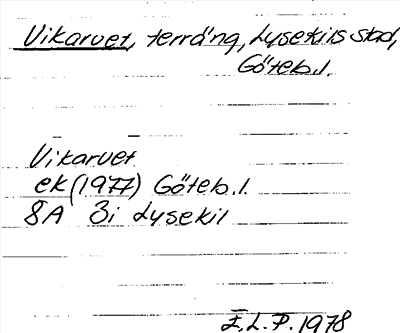 Vikarvet, terräng, Lysekils stad,
Göteb.l.
Vikarvet
ek (1977) Göteb.l.
8A 3i Lysekil
E.L.P. 1978